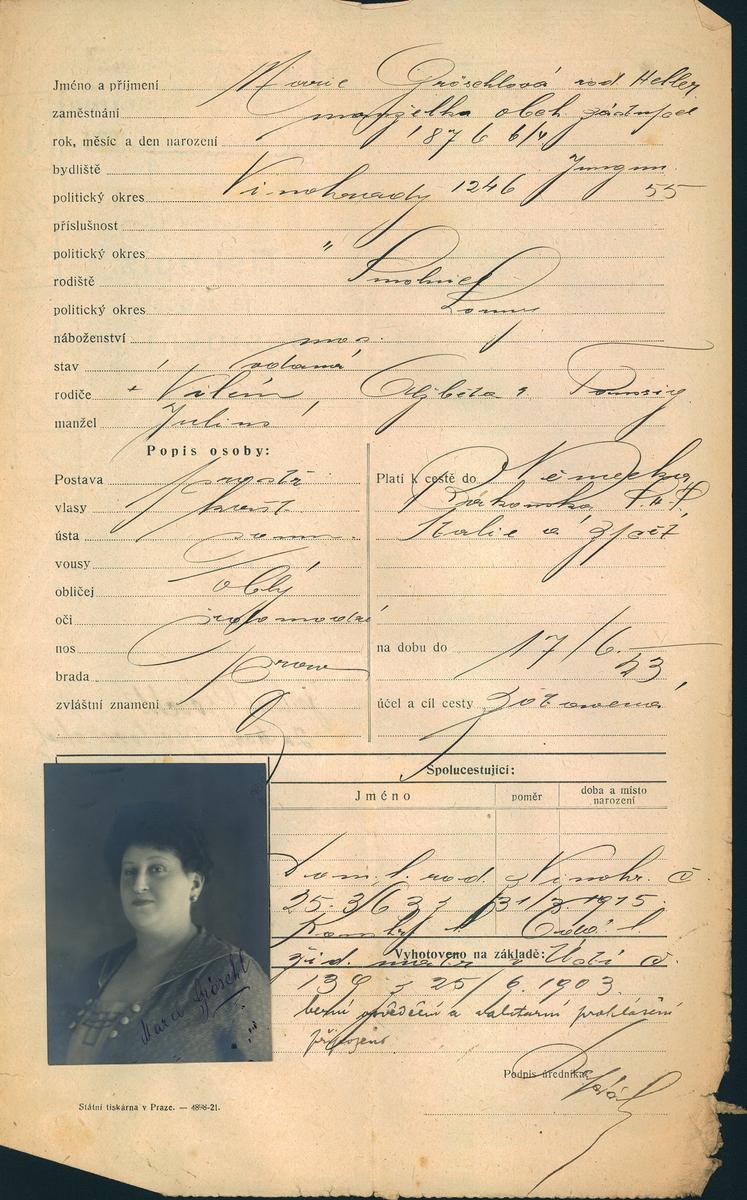 Jméno a příjmení Marie Gröschlová rod. Heller
zaměstnání manželka obch. zástupce
rok, měsíc a den narození 1876 6/4
bydliště Jungm.
politický okres Vinohrady 1246 55
příslušnost
politický okres "
rodiště Smolnice
politický okres Louny
náboženství mos.
stav vdaná
rodiče + Vilém, Alžběta r.
manžel Julius
Popis osoby:
Postava prostř.
vlasy
ústa
vousy
obličej oblý
oči
nos
brada
zvláštní znamení
Platí k cestě do Německa,
Rakouska,
Italie a zpět
na dobu do 17/6. 23
účel a cíl cesty zotavená
Spolucestující:
Jméno poměr doba a místo narození
Dom. l. rod. Vinohr. č.
31/3. 1915.
l.
Vyhotoveno na základě:
žid. v Ústí č.
139 z 25/6. 1903.
berní osvědčení a valutární prohlášení
připojeno
Podpis úředníka:
Marie Gröschl
Státní tiskárna v Praze. — 4898-21.